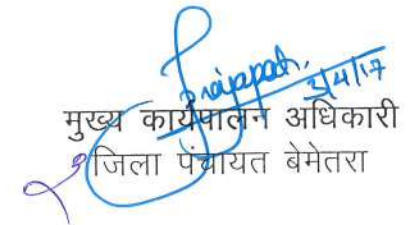 3/4/17
मुख्य कार्यपालन अधिकारी
जिला पंचायत बेमेतरा